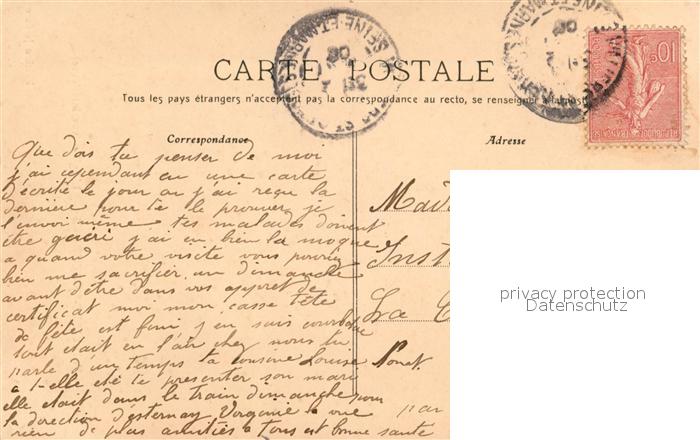 CARTE POSTALE
Tous les pays étrangers n'acceptent pas la correspondance au recto, se renseigner à la poste
Correspondance
Que dois tu penser de moi
j'ai cependant eu une carte
d'écrite le jour ou j'ai reçu la
dernière pour te le prouver je
l'envoi même tes malades doivent
être guéri j'ai eu bien la moque
a quand votre visite vous pourriez
bien me sacrifier un dimanche
avant d'être dans vos apprêt de
certificat moi mon casse tête
de fête est fini j'en suis courbatue
tout était en l'air chez nous tu
parle d'un temps ta cousine Louise
a t-elle été te présenter son mari
elle était dans le train dimanche pour
la direction d'esternay Virginie a vue
rien de plus amitiés a tous et bonne santé
Adresse
Mad
Inst
La
Nonat
par
10c
REPUBLIQUE FRANÇAISE
SEINE-ET-MARNE
SEINE-ET-MARNE
privacy protection
Datenschutz